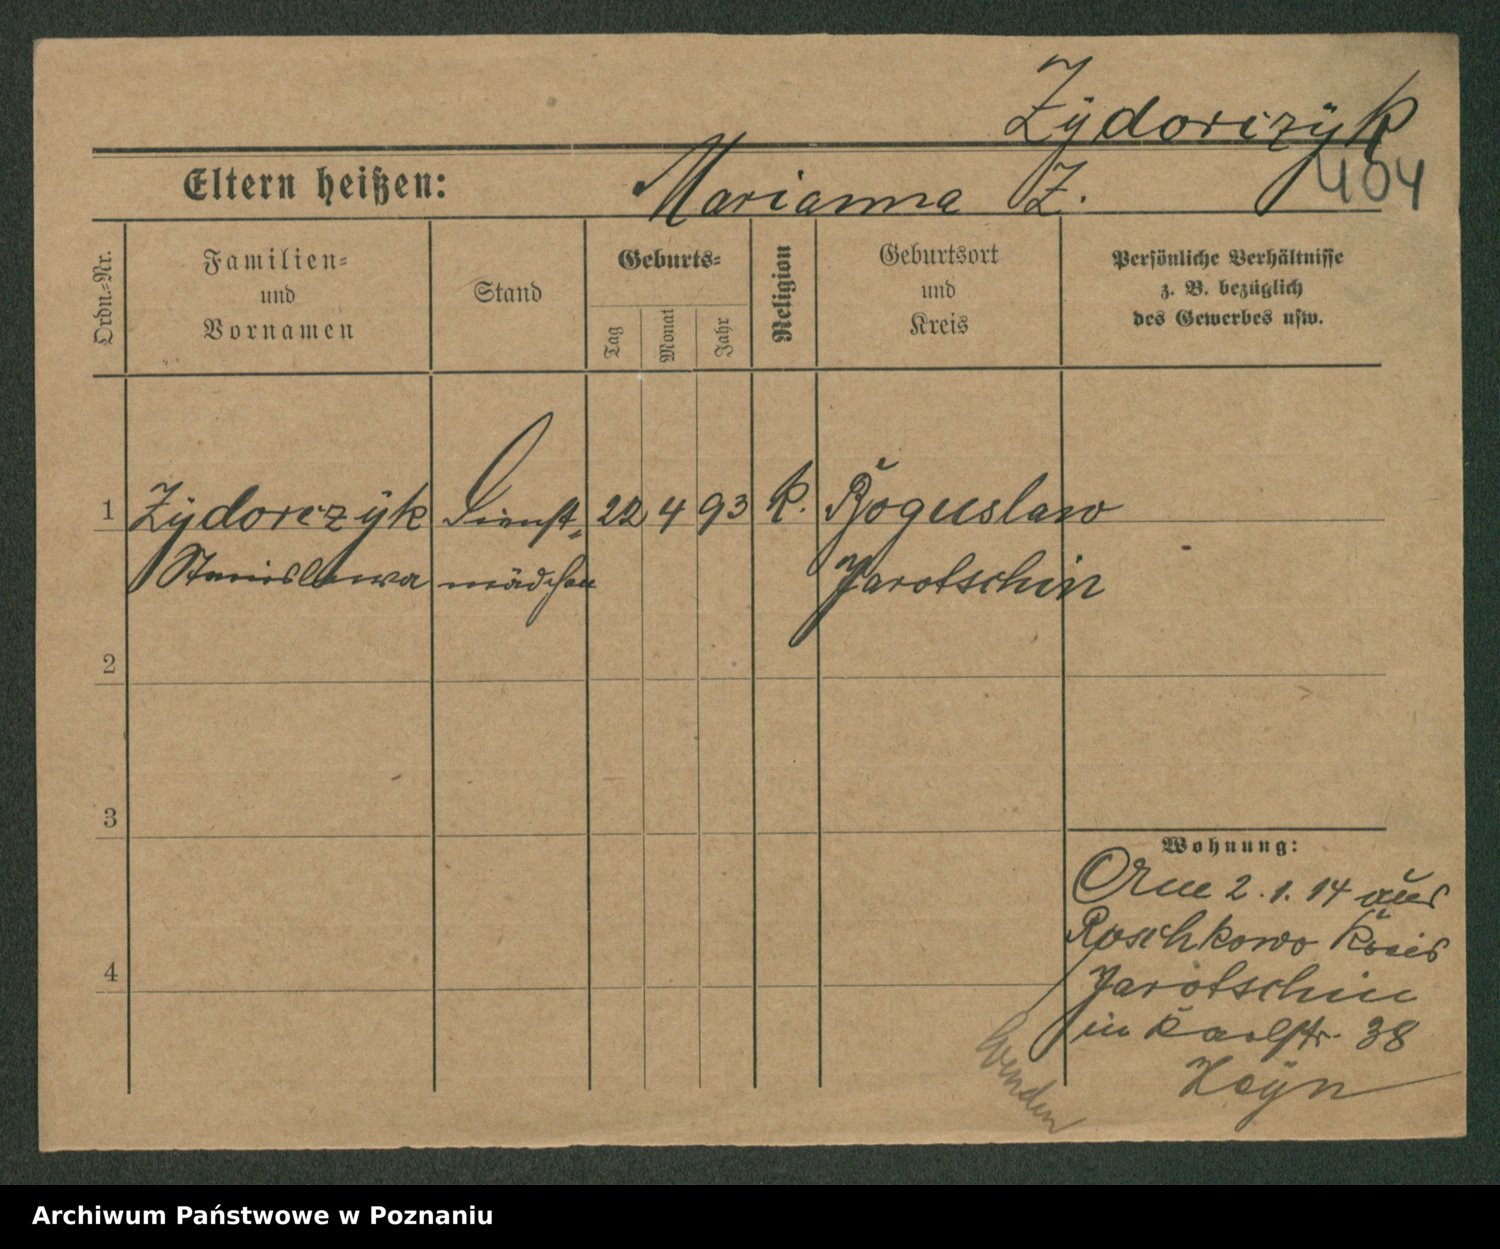 Zÿdorczÿk
404
Eltern heißen: Marianna Z.
Ordn.-Nr.
Familien-
und
Vornamen
Stand
Geburts-
Tag
Monat
Jahr
Religion
Geburtsort
und
Kreis
Persönliche Verhältnisse
z. B. bezüglich
des Gewerbes usw.
1 Zÿdorczÿk Dienst- 22 4 93 k. Boguslaw
Stanislawa mädchen Jarotschin
2
3
4
Wohnung:
2.1.14 aus
Roschkowo Kreis
Jarotschin
in Karlstr. 38
Heÿn
wenden
Archiwum Państwowe w Poznaniu